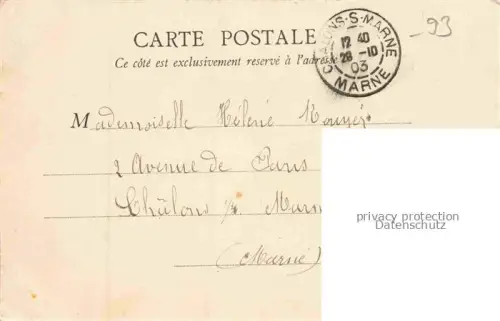 _93
CARTE POSTALE
Ce côté est exclusivement reservé à l'adresse
CHALONS-S-MARNE
12 40
26 -10
03
MARNE
Mademoiselle Hélène
2 Avenue de Paris
Châlons s/. Marn
(Marne)
privacy protection
Datenschutz